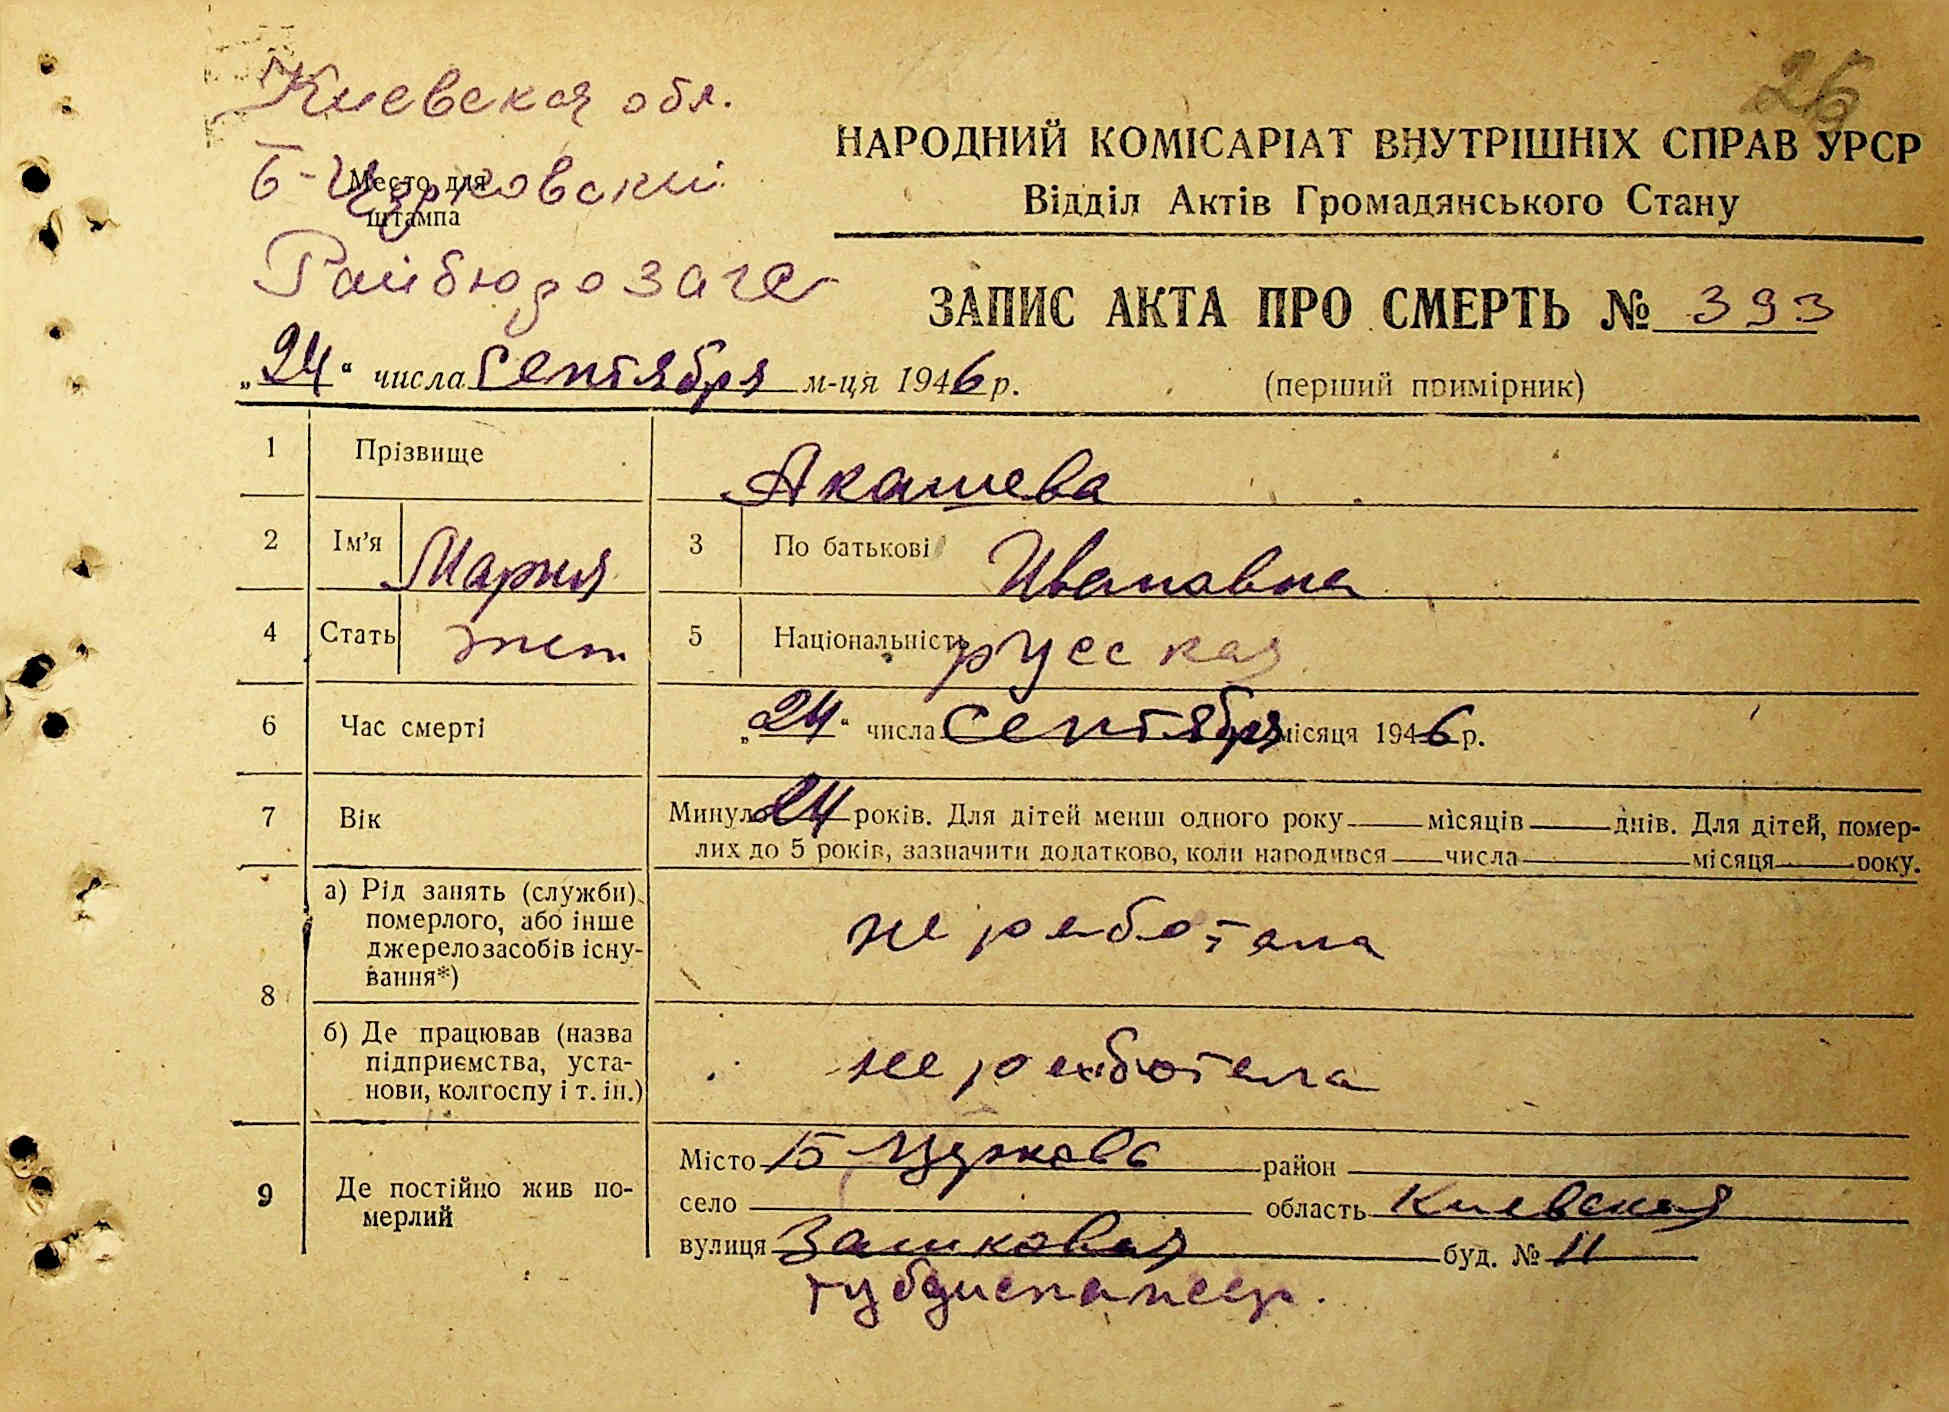 26
Киевская обл.
Б-Церковский
Место для
штампа
Райбюро загс
НАРОДНИЙ КОМІСАРІАТ ВНУТРІШНІХ СПРАВ УРСР
Відділ Актів Громадянського Стану
ЗАПИС АКТА ПРО СМЕРТЬ № 393
„24“ числа Сентября м-ця 1946 р. (перший примірник)
1 Прізвище Акашева
2 Ім’я Мария 3 По батькові Ивановна
4 Стать жен 5 Національність русская
6 Час смерті „24“ числа Сентября місяця 1946 р.
7 Вік Минуло 24 років. Для дітей менш одного року місяців днів. Для дітей, помер-
лих до 5 років, зазначити додатково, коли народився числа місяця року.
8 а) Рід занять (служби)
померлого, або інше
джерело засобів існу-
вання*)
не работала
б) Де працював (назва
підприємства, уста-
нови, колгоспу і т. ін.)
не работала
9 Де постійно жив по-
мерлий
Місто Б Церковь район
село область Киевская
вулиця буд. № 11
тубдиспансер.